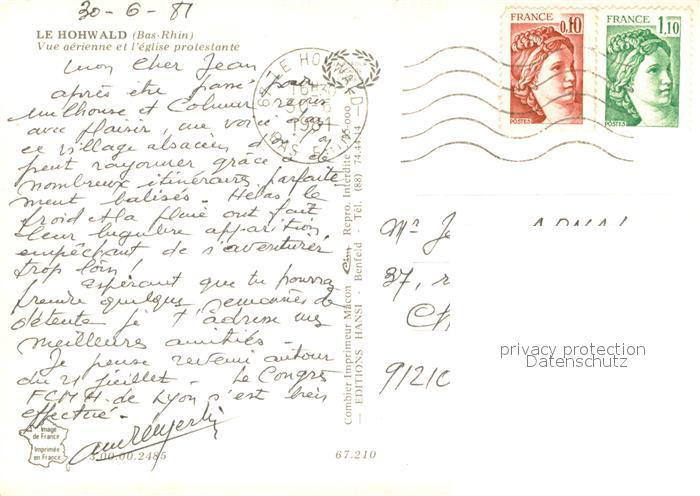 30-6-81
LE HOHWALD (Bas-Rhin)
Vue aérienne et l'église protestante
Mon cher Jean
après être passé par
Mulhouse et Colmar revus
avec plaisir, me voici dans
ce village alsacien d'où
peut rayonner grâce à de
nombreux itinéraires parfaite
ment balisés. Hélas le
froid et la pluie ont fait
leur lugubre apparition
empêchant de s'aventurer
trop loin!
Espérant que tu pourras
prendre quelques semaines de
détente je t'adresse mes
meilleures amitiés -
Je pense revenir autour
du 21 juillet - Le Congrès
FCMH. de Lyon s'est bien
effectué -
Image
de France
Imprimée
en France
3.00.00.2485
67.210
Combier Imprimeur Mâcon Cim Repro. Interdite
— EDITIONS HANSI - Benfeld - Tél. (88) 74.44.14
67 LE HOHWALD
16H
1981
BAS RHIN
FRANCE
0,10
POSTES
FRANCE
1,10
POSTES
Mr Je
37, r
9121
privacy protection
Datenschutz